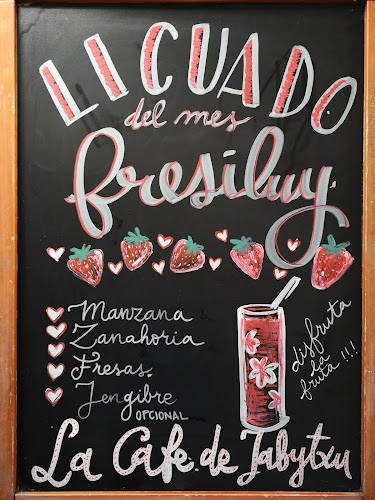 LICUADO
del mes
fresiluy
Manzana
Zanahoria
Fresas.
Jengibre
OPCIONAL
disfruta
la
fruta !!!
La Cafe. de Tabytxu